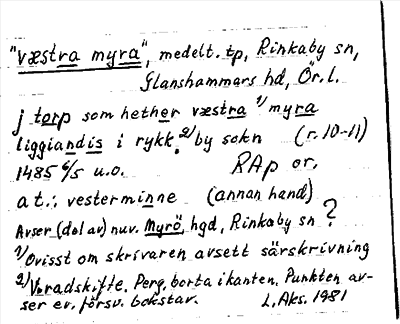 "væstra myra", medelt. tp, Rinkaby sn,
Glanshammars hd, Ör. l.
j torp som hether væstra 1) myra
liggiandis i rykk. 2) by sokn (r. 10-11)
1485 6/5 u.o. RAp or.
a t.: vesterminne (annan hand)
Avser (del av) nuv. Myrö, hgd, Rinkaby sn ?
1) Ovisst om skrivaren avsett särskrivning
2) Vid radskifte. Perg. borta i kanten. Punkten av-
ser ev. försv. bokstav. L. Aks. 1981